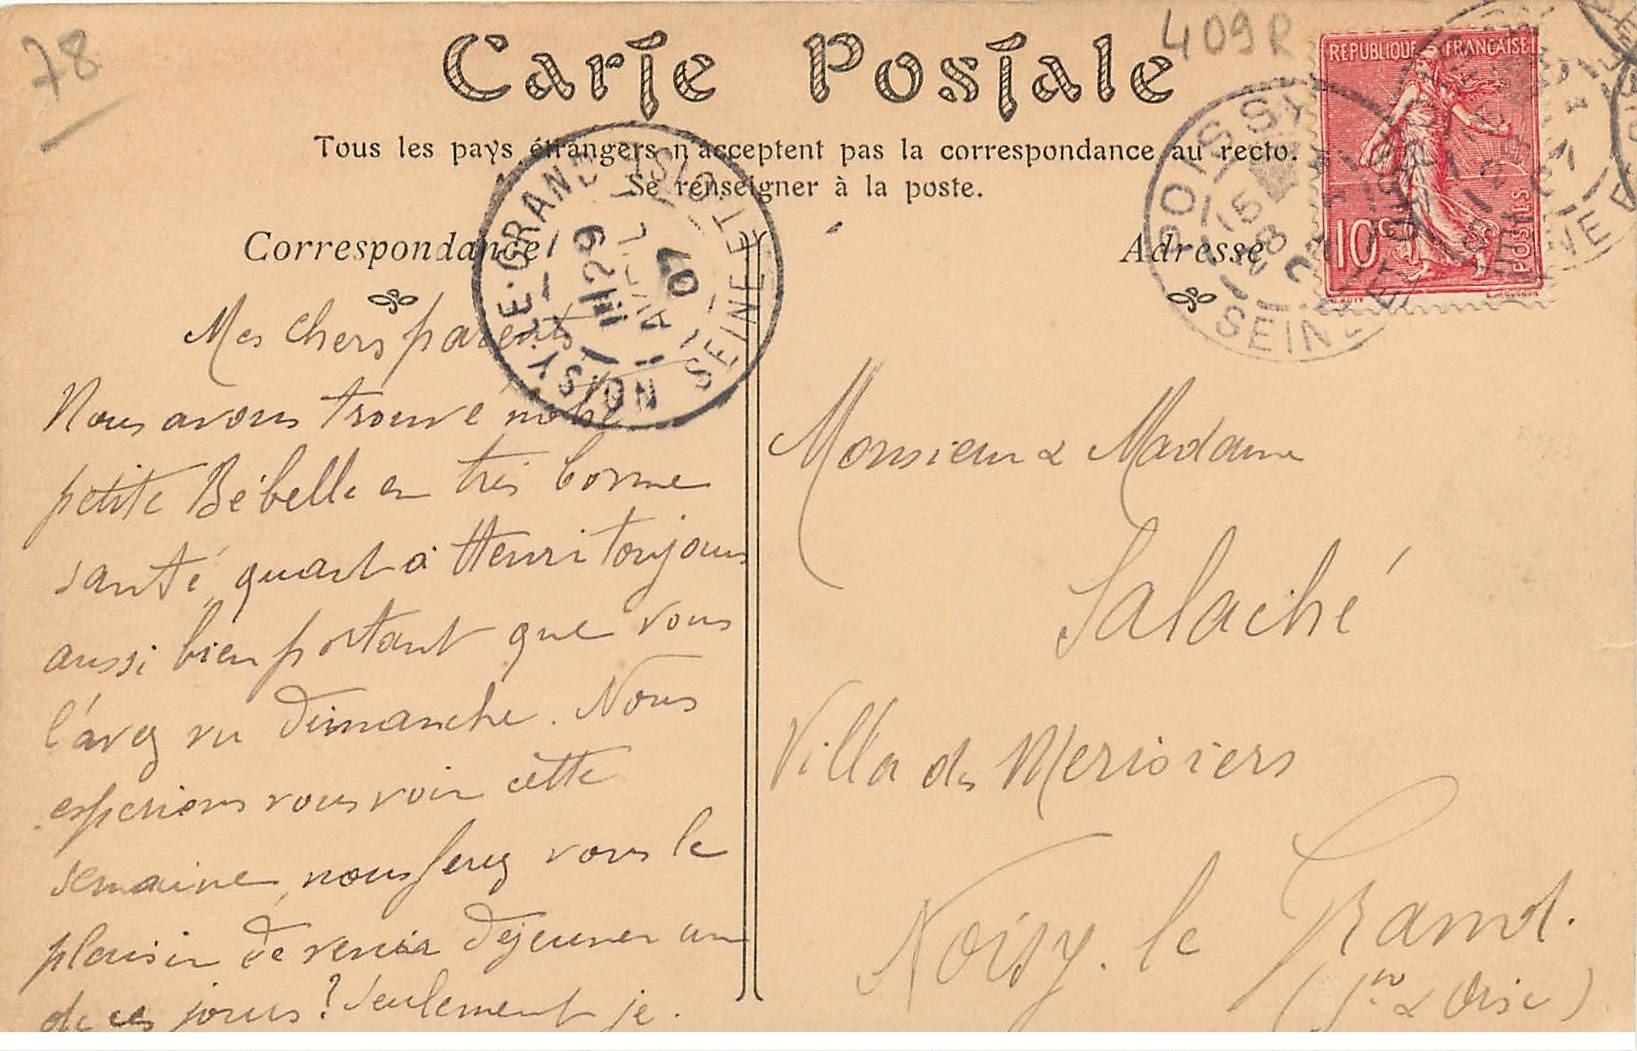 78
409R
Carte Postale
Tous les pays étrangers n'acceptent pas la correspondance au recto.
Se renseigner à la poste.
Correspondance
Adresse
REPUBLIQUE FRANÇAISE
10c
POSTES
POISSY
SEINE ET OISE
NOISY-LE-GRAND
SEINE ET OISE
29
AVRIL
07
Mes chers parents
Nous avons trouvé notre
petite Bébelle en très bonne
santé, quant à Henri toujours
aussi bien portant que vous
l'avez vu Dimanche. Nous
esperions vous voir cette
semaine, nous ferez vous le
plaisir de venir déjeuner un
de ces jours? Seulement je.
Monsieur & Madame
Salaché
Villa des Merisiers
Noisy. le Grand.
(Sne & Oise)